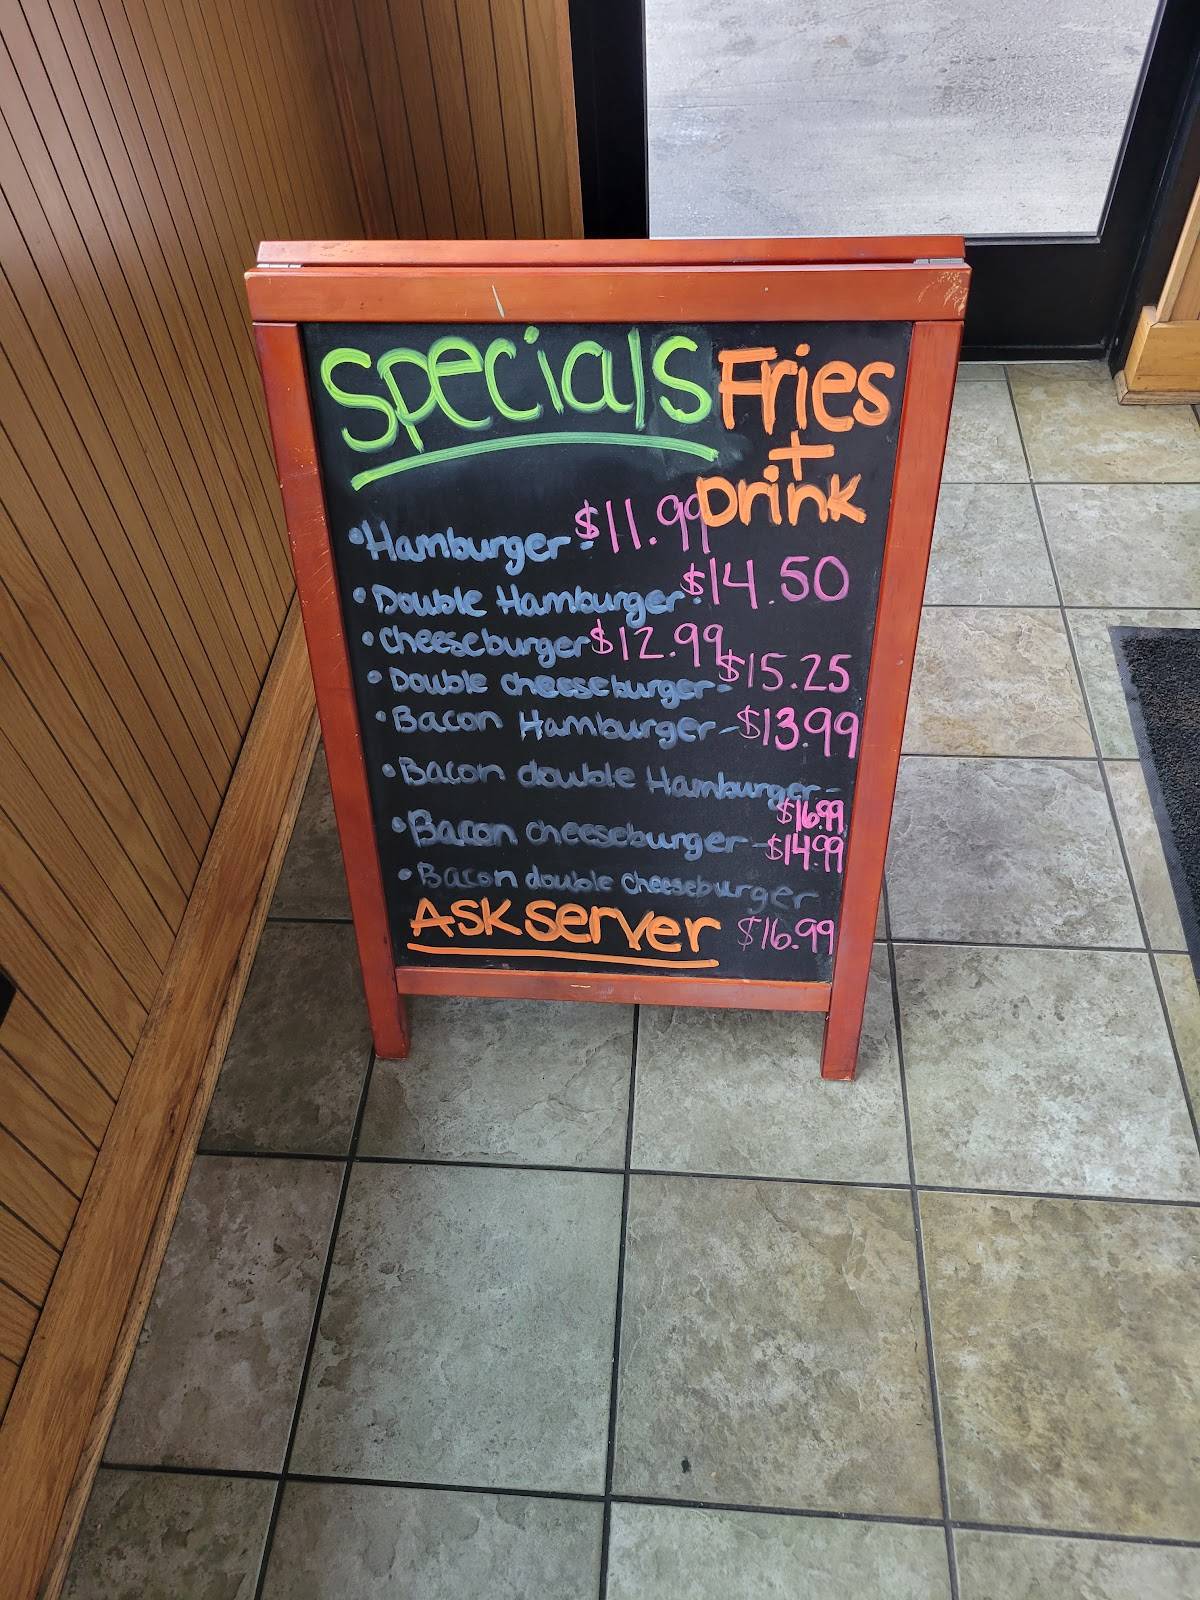 Specials Fries
+
Drink
•Hamburger- $11.99
•Double Hamburger- $14.50
•Cheeseburger $12.99
•Double cheeseburger- $15.25
•Bacon Hamburger- $13.99
•Bacon double Hamburger-
$16.99
•Bacon cheeseburger- $14.99
•Bacon double cheeseburger
Ask server $16.99